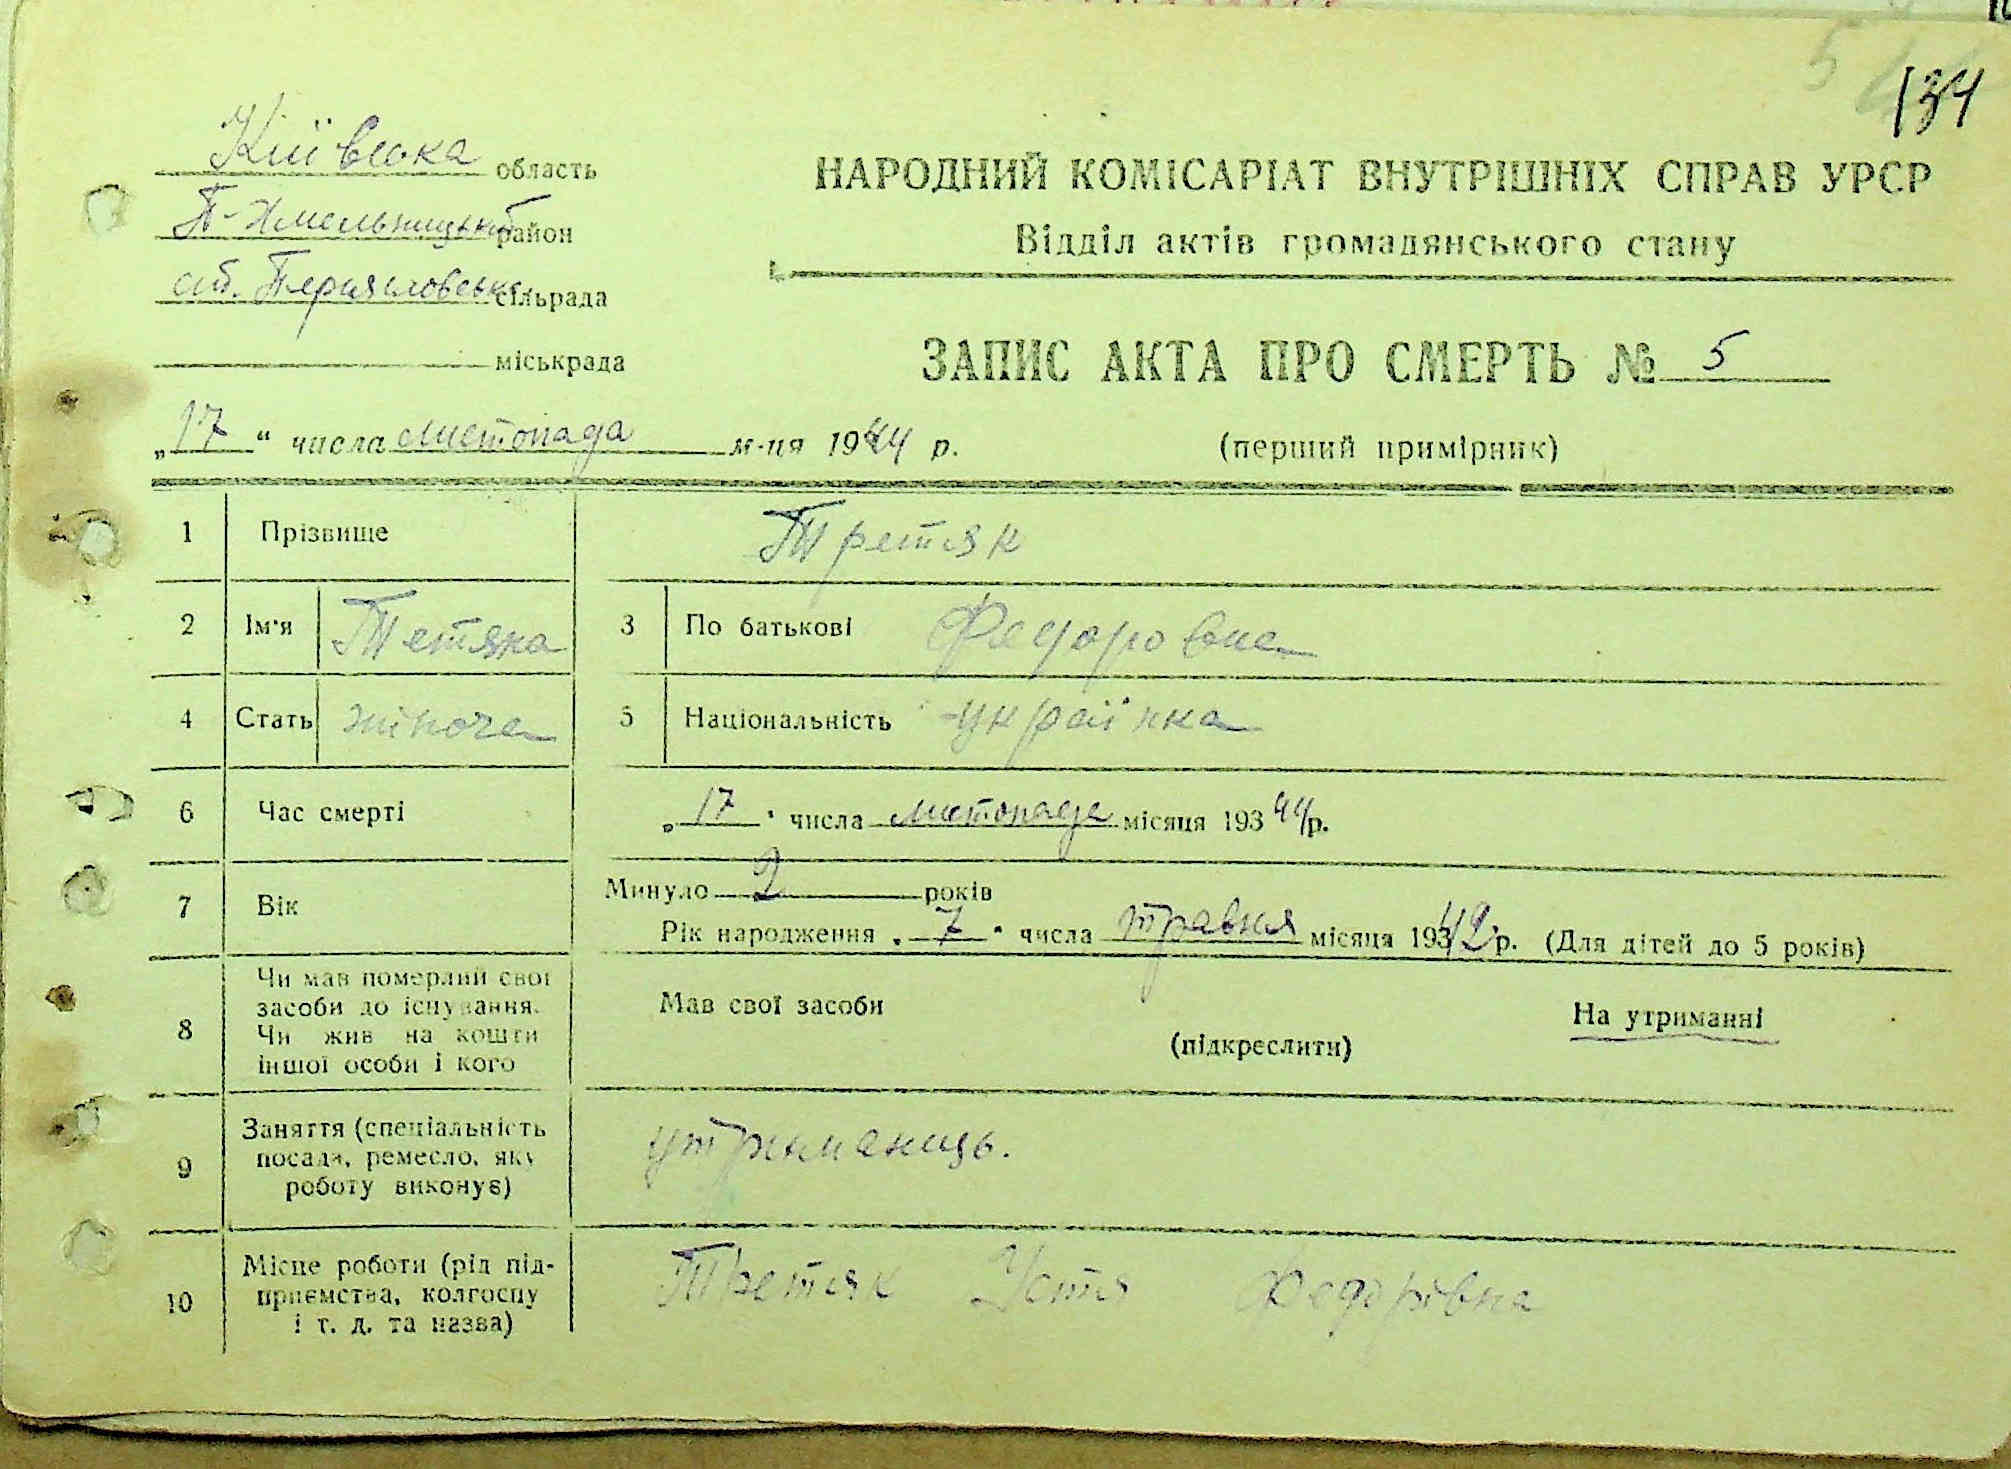 5
134
Київська область
П-Хмельницький район
сіб. Переяславська сільрада
міськрада
НАРОДНИЙ КОМІСАРІАТ ВНУТРІШНІХ СПРАВ УРСР
Відділ актів громадянського стану
ЗАПИС АКТА ПРО СМЕРТЬ № 5
„17“ числа листопада м-ця 1944 р. (перший примірник)
1 Прізвище Третяк
2 Ім'я Тетяна 3 По батькові Федоровна
4 Стать жіноча 5 Національність українка
6 Час смерті „17“ числа листопада місяця 19344 р.
7 Вік Минуло 2 років
Рік народження „7“ числа травня місяця 19342 р. (Для дітей до 5 років)
8 Чи мав померлий свої засоби до існування. Чи жив на кошти іншої особи і кого
Мав свої засоби (підкреслити) На утриманні
9 Заняття (спеціальність посада, ремесло, яку роботу виконує) утриманиць.
10 Місце роботи (рід підприємства, колгоспу і т. д. та назва) Третяк Устя Федорівна